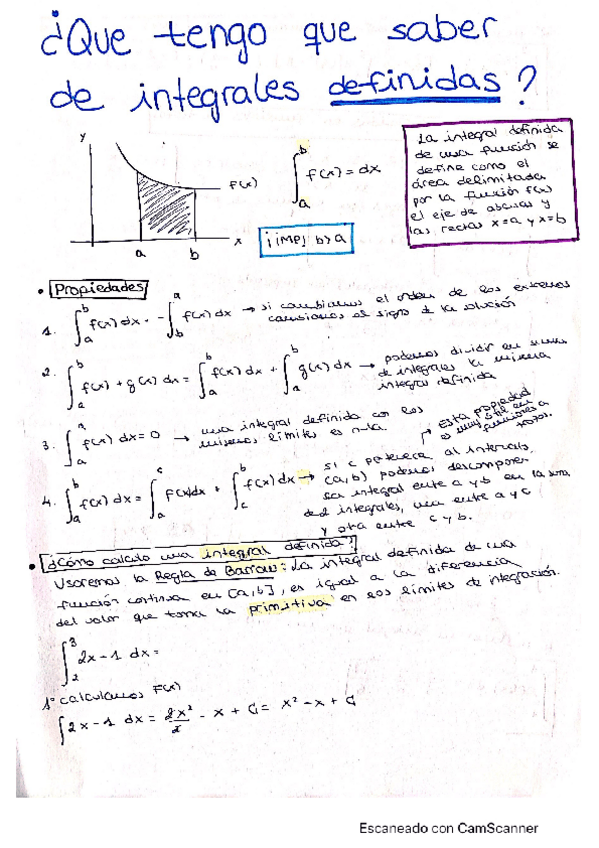 ¿Que tengo que saber
de integrales definidas?
y
f(x)
x
a
b
∫_a^b f(x) = dx
¡IMP! b>a
La integral definida
de una función se
define como el
área delimitada
por la función f(x)
el eje de abcisas y
las rectas x=a y x=b
• Propiedades
1. ∫_a^b f(x) dx = -∫_b^a f(x) dx → si cambiamos el orden de los extremos
cambiamos el signo de la solución
2. ∫_a^b f(x) + g(x) dx = ∫_a^b f(x) dx + ∫_a^b g(x) dx → podemos dividir en suma
de integrales la misma
integral definida
3. ∫_a^a f(x) dx = 0 → una integral definida con los
mismos límites es nula.
→ Esta propiedad
es muy útil en
funciones a
trozos.
4. ∫_a^b f(x) dx = ∫_a^c f(x)dx + ∫_c^b f(x) dx → si c pertenece al intervalo
(a,b) podemos descomponer
la integral entre a y b en la suma
de 2 integrales, una entre a y c
y otra entre c y b.
• ¿Cómo calculo una integral definida?
Usaremos la Regla de Barrow: La integral definida de una
función continua en [a,b], es igual a la diferencia
del valor que toma la primitiva en los límites de integración.
∫_2^3 2x-1 dx =
1º calculamos F(x)
∫2x-1 dx = 2x²/2 - x + C = x² - x + C
Escaneado con CamScanner